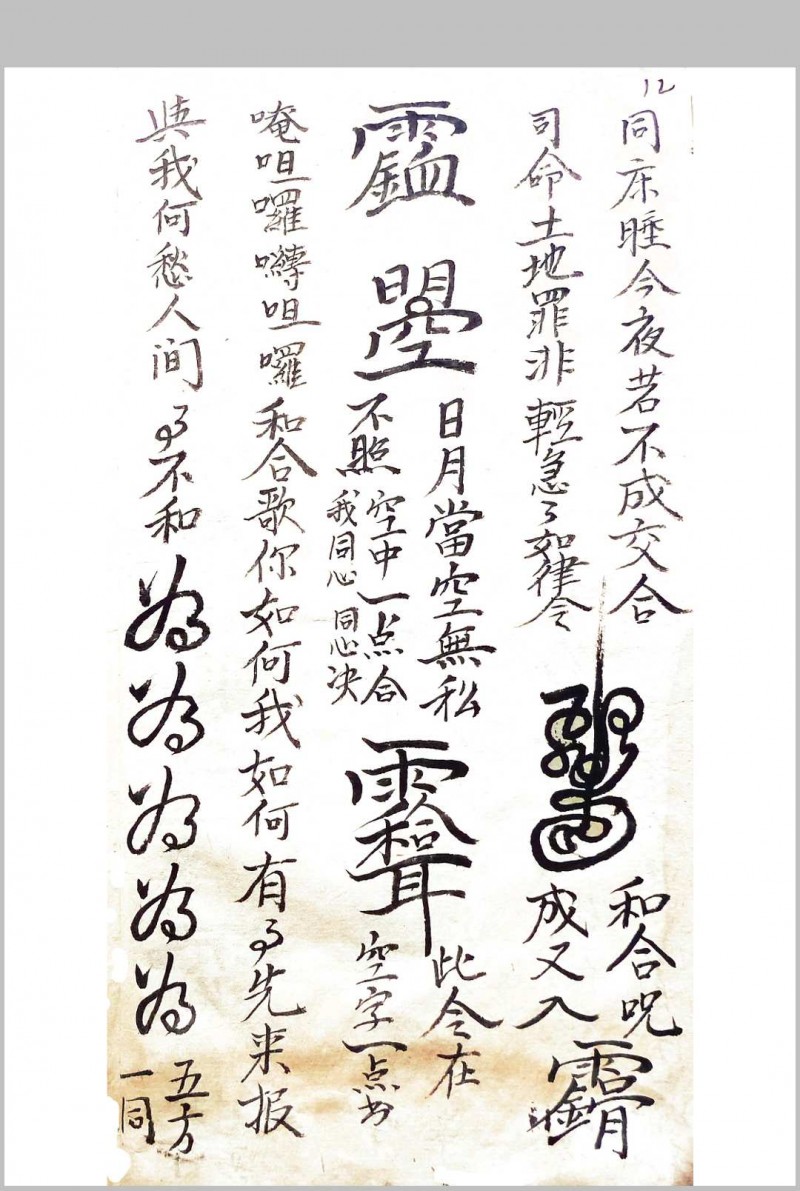 12
同床睡今夜若不成交合
司命土地罪非輕急々如律令
和合咒
成又入
日月當空無私
不照
空中一点合
我同心同心决
此令在
空字一点为
唵呾囉嚩呾囉和合歌你如何我如何有了先来报
與我何愁人间了不和为为为为为
五方
一同